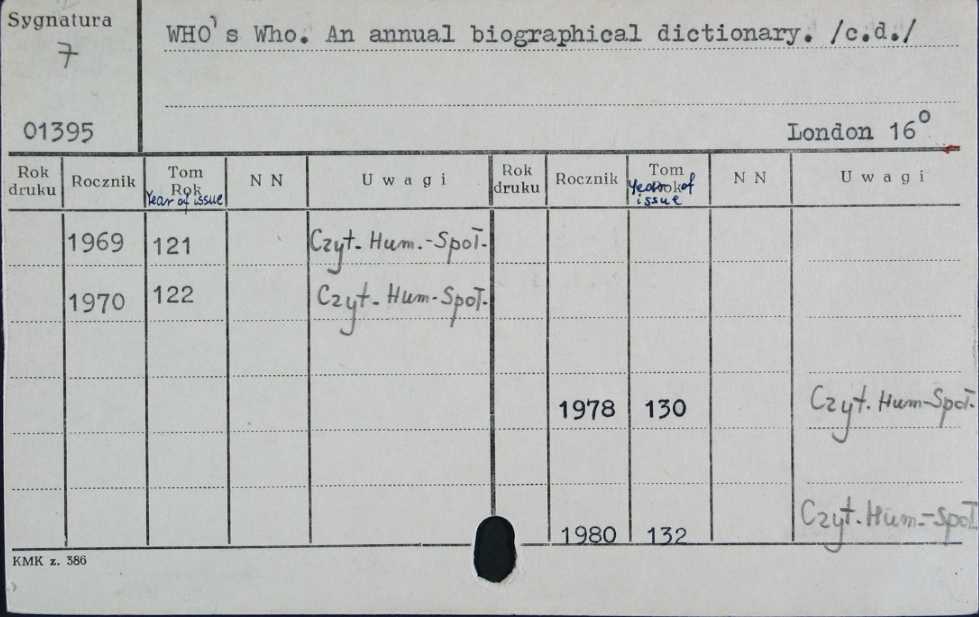 Sygnatura
7
01395
WHO's Who. An annual biographical dictionary. /c.d./
London 16°
Rok druku Rocznik Tom Rok Year of issue NN Uwagi Rok druku Rocznik Tom Rok Year of issue NN Uwagi
1969 121 Czyt. Hum.-Społ.
1970 122 Czyt. Hum-Społ.
1978 130 Czyt. Hum-Społ.
1980 132 Czyt. Hum.-Społ.
KMK z. 386